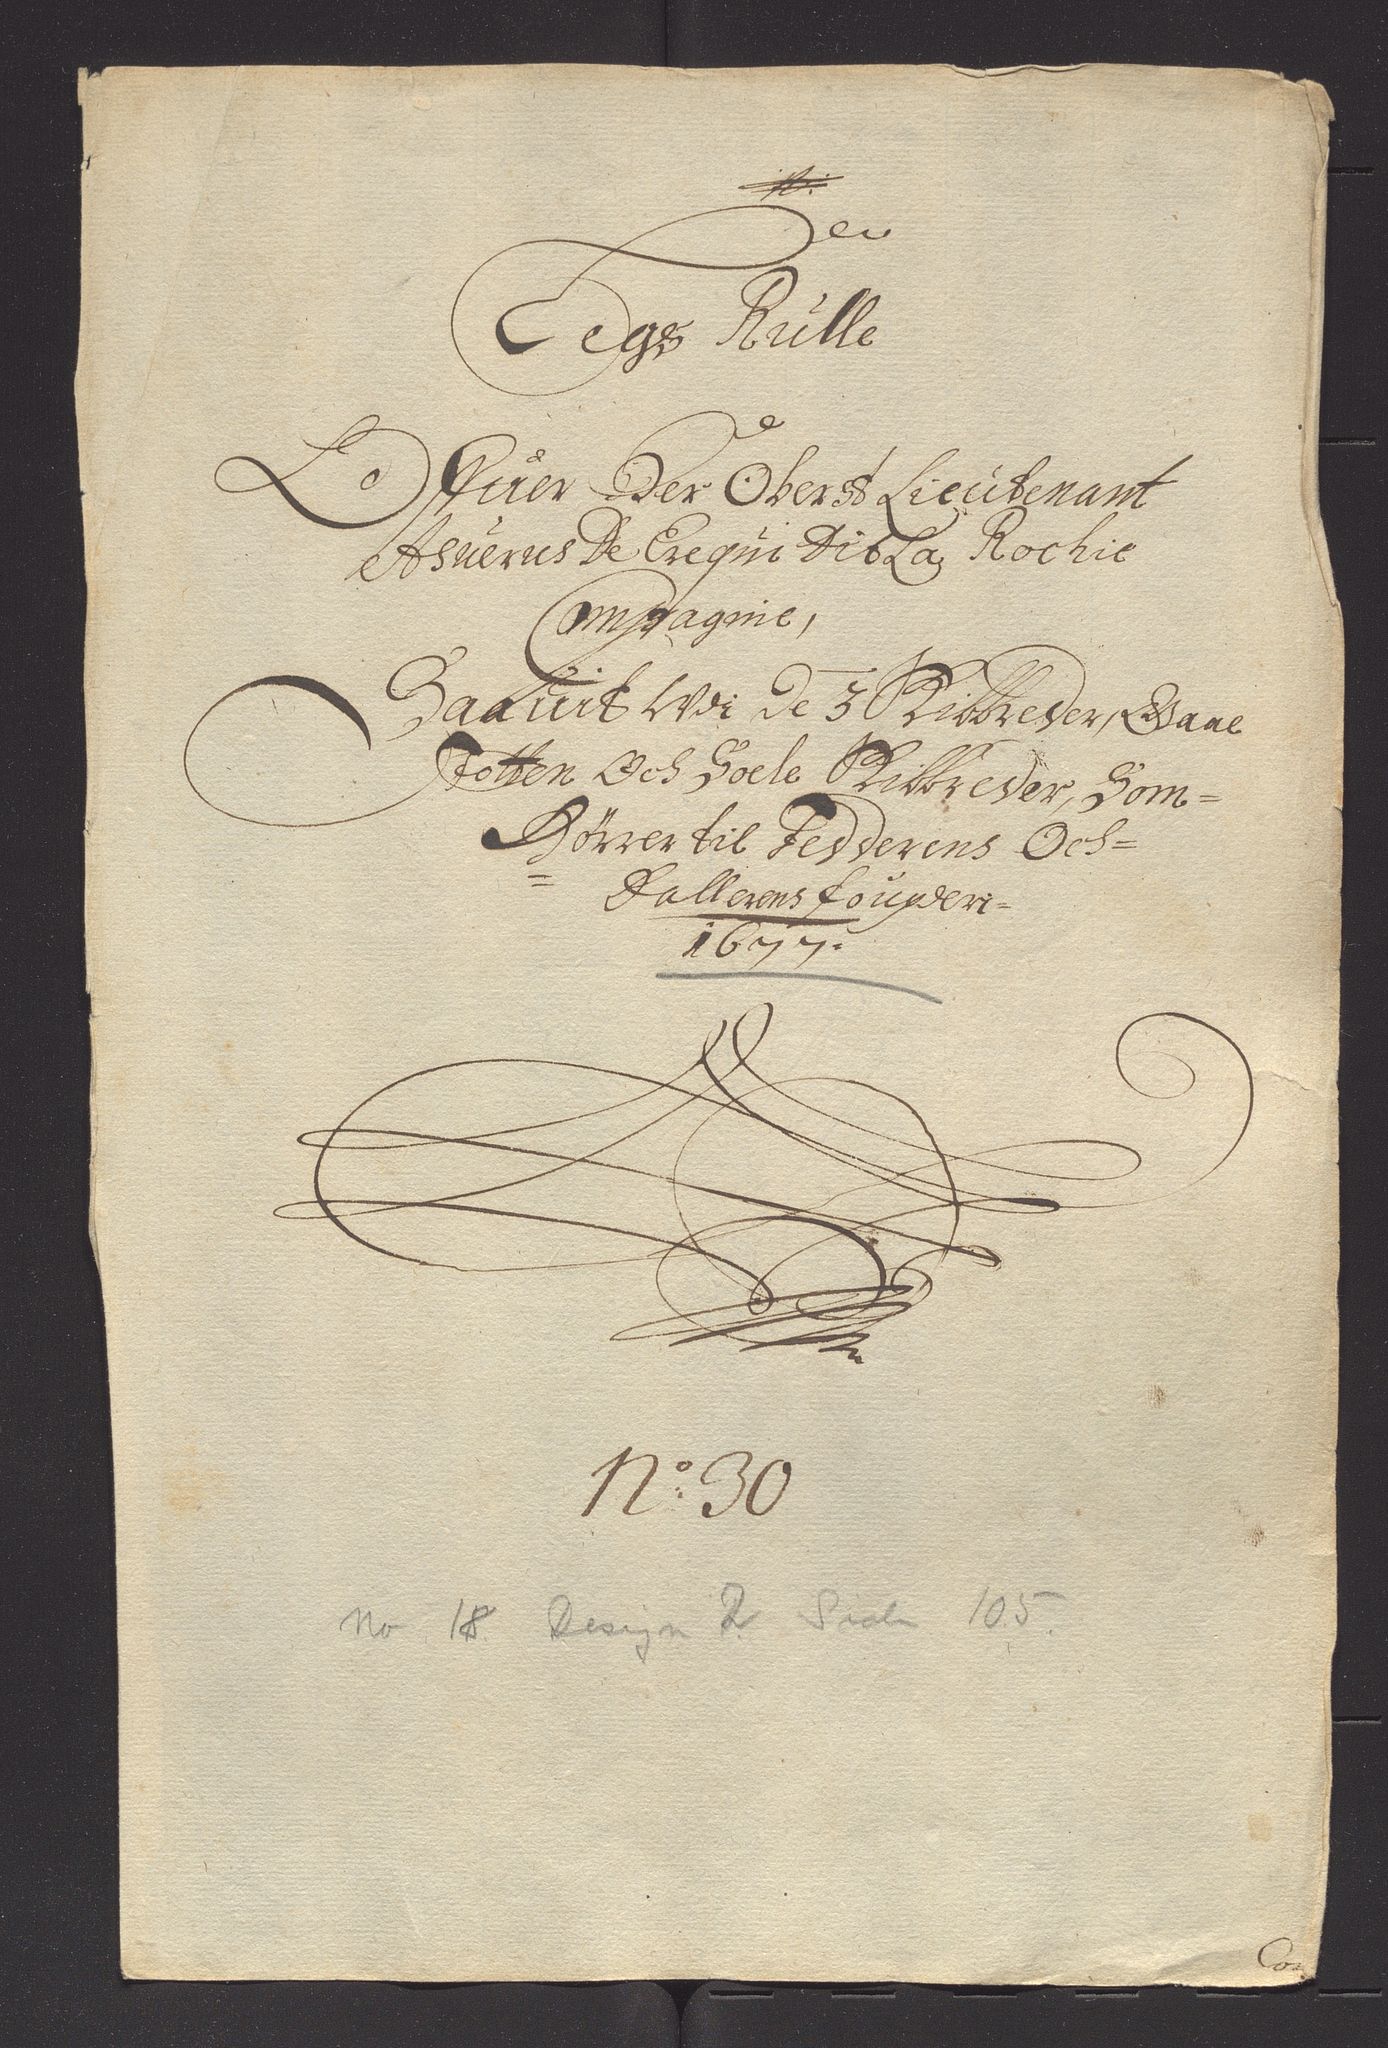 En
Legs Rulle
Offuer Der Oberst Lieutenant
Asuerus De Crequi Dit La Rochie
Compagnie,
Saauit Udi de 3 Skibbreder, Waale
Totten Och Soele Skibbreder, Som=
Hörrer til Jedderens Och=
Dallerens fougderi=
1677.
No: 30
No 18. Design R. Side 105.
Con